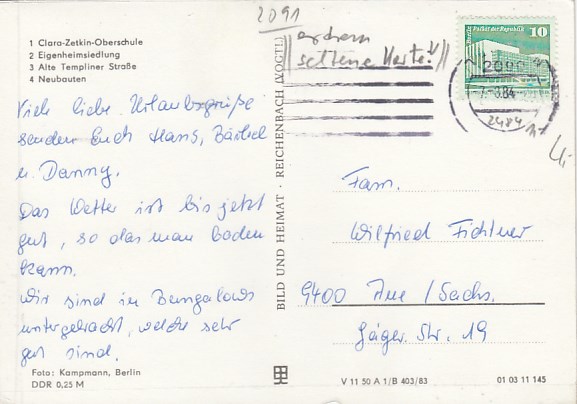 2091
extrem
seltene Karte!
1 Clara-Zetkin-Oberschule
2 Eigenheimsiedlung
3 Alte Templiner Straße
4 Neubauten
Viele liebe Urlaubsgrüße
senden Euch Hans, Bärbel
u. Danny.
Das Wetter ist bis jetzt
gut, so das man baden
kann.
Wir sind in Bungalows
untergebracht, welche sehr
gut sind.
Foto: Kampmann, Berlin
DDR 0,25 M
BILD UND HEIMAT · REICHENBACH (VOGTL)
Palast der Republik
10
84
2484
Fam.
Wilfried Fichtner
9400 Aue / Sachs.
Jäger. Str. 19
V 11 50 A 1/B 403/83
01 03 11 145